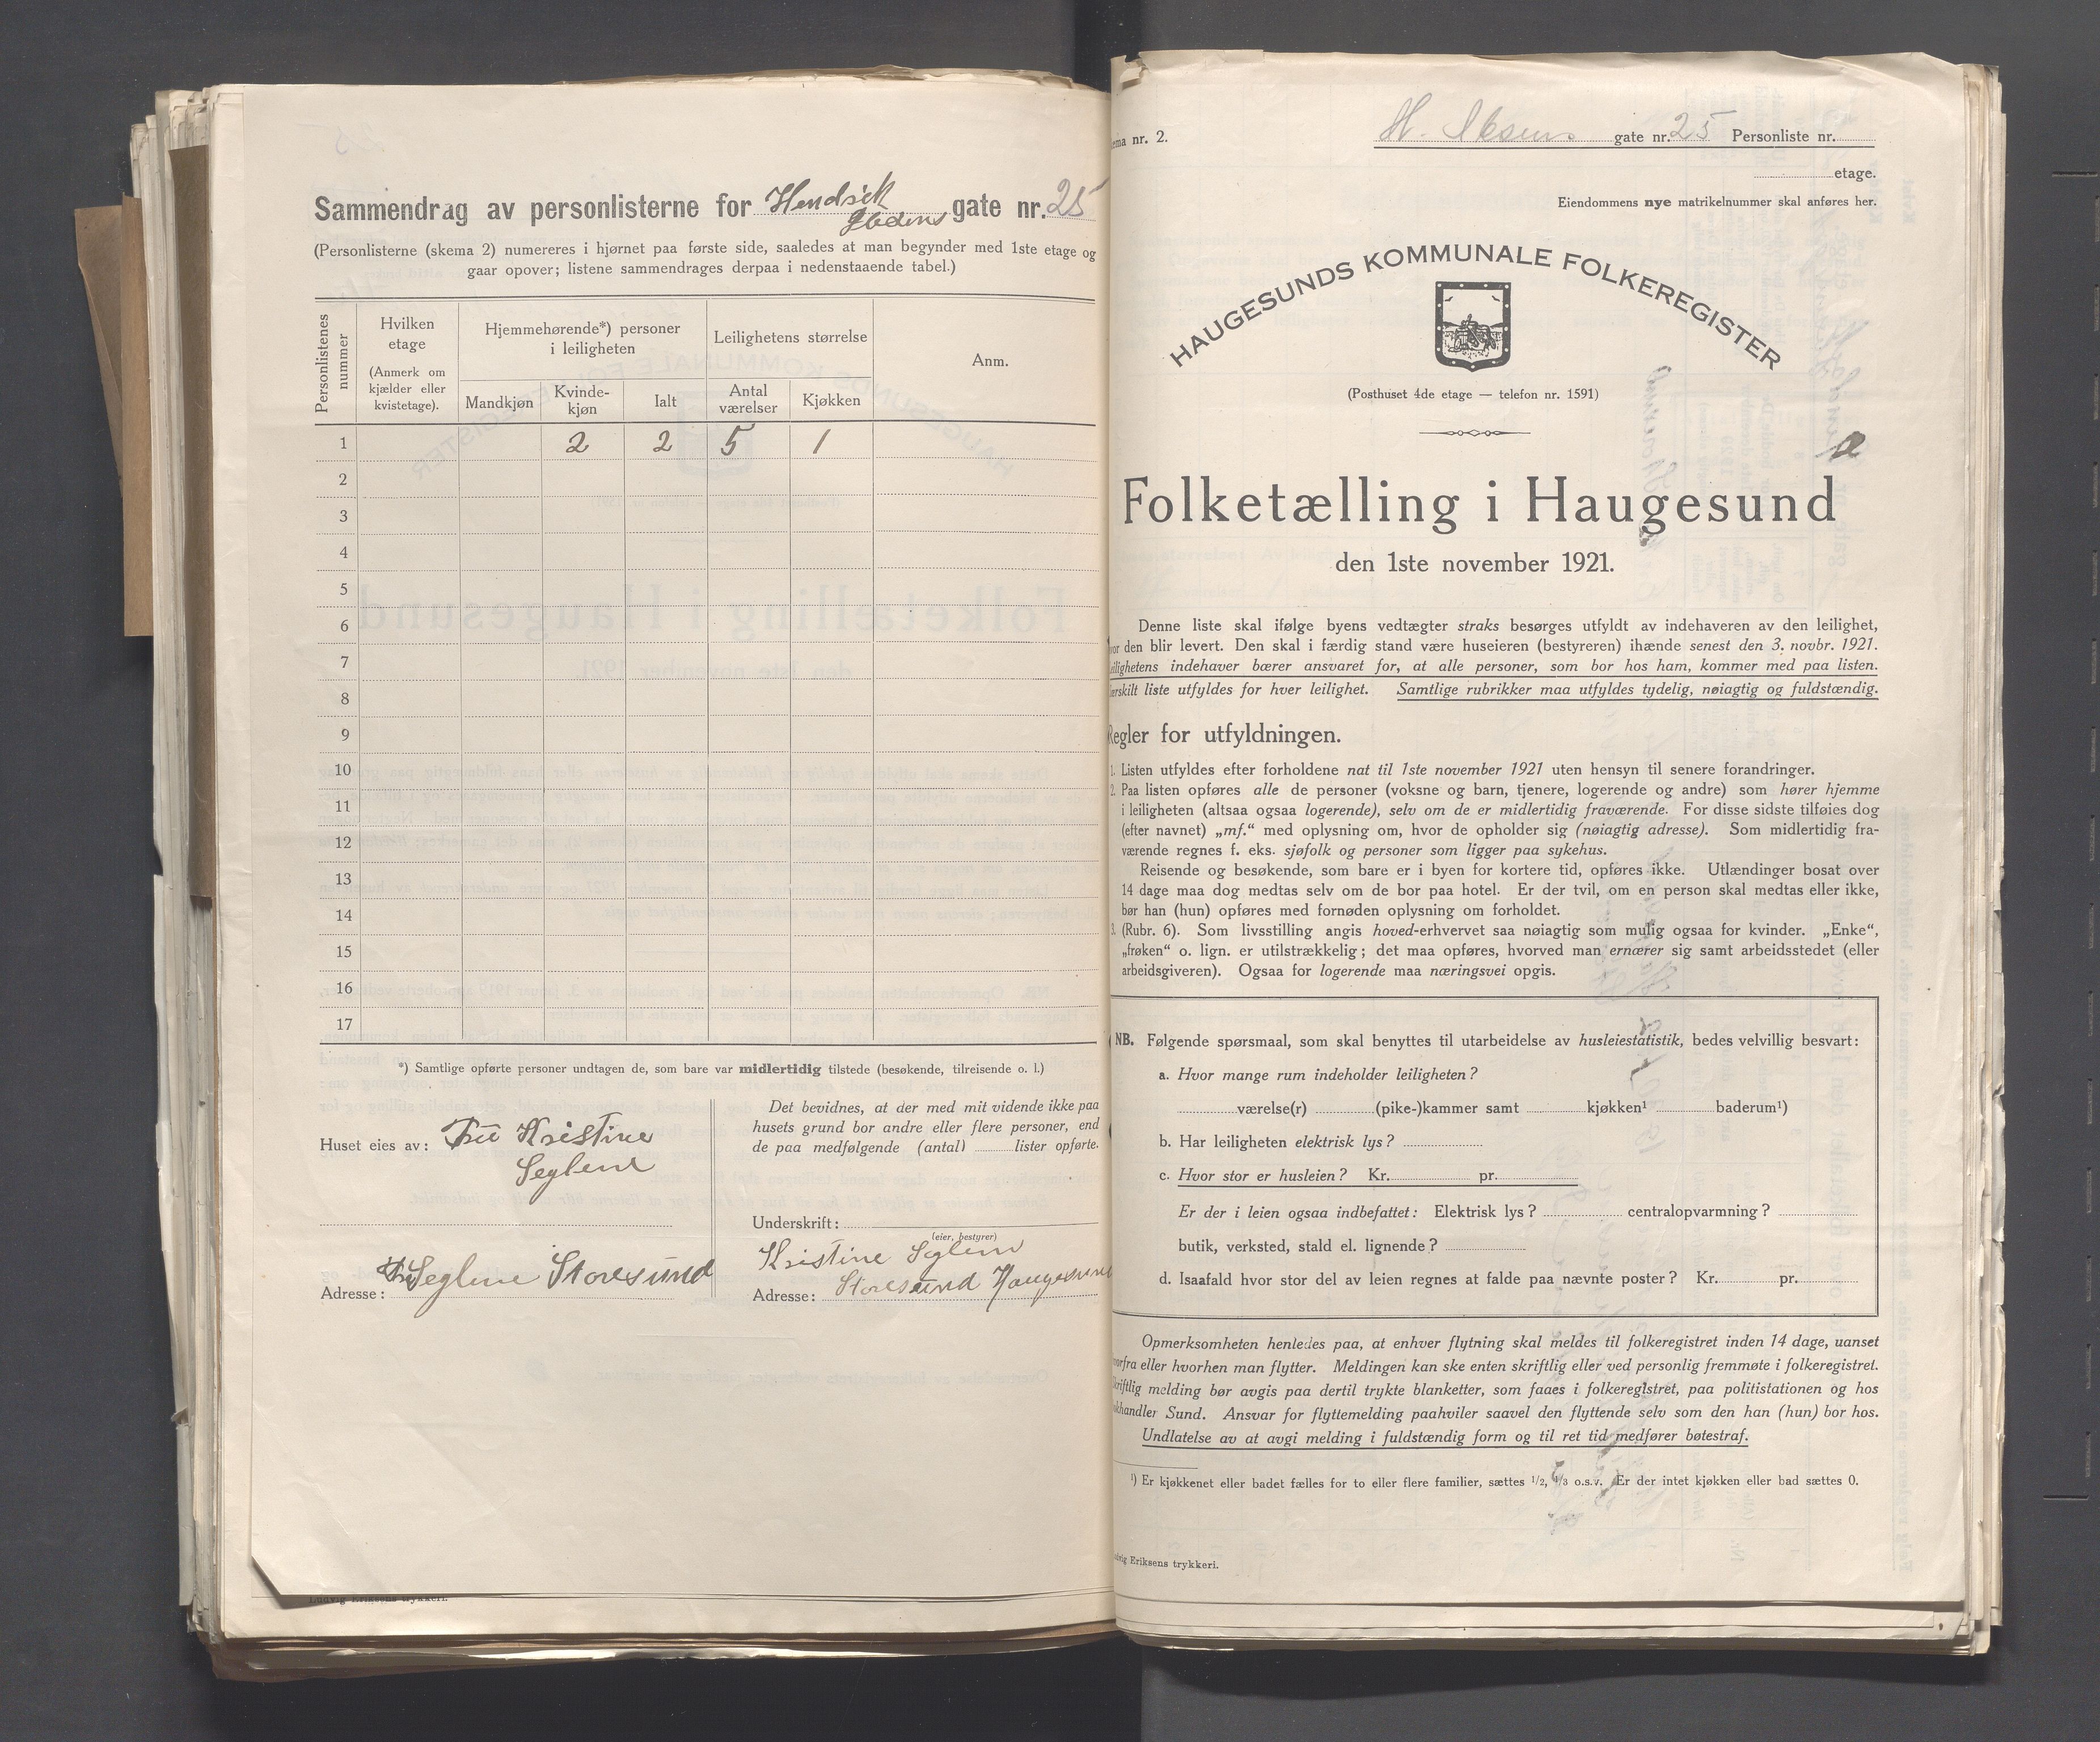 Sammendrag av personlisterne for Hendrik
Ibsens gate nr. 25
(Personlisterne (skema 2) numereres i hjørnet paa første side, saaledes at man begynder med 1ste etage og
gaar opover; listene sammendrages derpaa i nedenstaaende tabel.)
Personlistenes nummer
Hvilken etage
(Anmerk om kjælder eller kvistetage).
Hjemmehørende*) personer i leiligheten
Mandkjøn
Kvinde-kjøn
Ialt
Leilighetens størrelse
Antal værelser
Kjøkken
Anm.
1 2 2 5 1
2
3
4
5
6
7
8
9
10
11
12
13
14
15
16
17
*) Samtlige opførte personer undtagen de, som bare var midlertidig tilstede (besøkende, tilreisende o. l.)
Huset eies av: Fru Kristine
Seglem
Adresse: Seglem Storesund
Det bevidnes, at der med mit vidende ikke paa
husets grund bor andre eller flere personer, end
de paa medfølgende (antal) lister opførte.
Underskrift:
(eier, bestyrer)
Kristine Seglem
Adresse: Storesund Haugesund
Ludvig Eriksens trykkeri.
ema nr. 2.
H. Ibsens gate nr. 25 Personliste nr.
etage.
Eiendommens nye matrikelnummer skal anføres her.
HAUGESUNDS KOMMUNALE FOLKEREGISTER
(Posthuset 4de etage — telefon nr. 1591)
Folketælling i Haugesund
den 1ste november 1921.
Denne liste skal ifølge byens vedtægter straks besørges utfyldt av indehaveren av den leilighet,
vor den blir levert. Den skal i færdig stand være huseieren (bestyreren) ihænde senest den 3. novbr. 1921.
eilighetens indehaver bærer ansvaret for, at alle personer, som bor hos ham, kommer med paa listen.
ærskilt liste utfyldes for hver leilighet. Samtlige rubrikker maa utfyldes tydelig, nøiagtig og fuldstændig.
Regler for utfyldningen.
1. Listen utfyldes efter forholdene nat til 1ste november 1921 uten hensyn til senere forandringer.
2. Paa listen opføres alle de personer (voksne og barn, tjenere, logerende og andre) som hører hjemme
i leiligheten (altsaa ogsaa logerende), selv om de er midlertidig fraværende. For disse sidste tilføies dog
(efter navnet) „mf.“ med oplysning om, hvor de opholder sig (nøiagtig adresse). Som midlertidig fra-
værende regnes f. eks. sjøfolk og personer som ligger paa sykehus.
Reisende og besøkende, som bare er i byen for kortere tid, opføres ikke. Utlændinger bosat over
14 dage maa dog medtas selv om de bor paa hotel. Er der tvil, om en person skal medtas eller ikke,
bør han (hun) opføres med fornøden oplysning om forholdet.
3. (Rubr. 6). Som livsstilling angis hoved-erhvervet saa nøiagtig som mulig ogsaa for kvinder. „Enke“,
„frøken“ o. lign. er utilstrækkelig; det maa opføres, hvorved man ernærer sig samt arbeidsstedet (eller
arbeidsgiveren). Ogsaa for logerende maa næringsvei opgis.
NB. Følgende spørsmaal, som skal benyttes til utarbeidelse av husleiestatistik, bedes velvillig besvart:
a. Hvor mange rum indeholder leiligheten?
værelse(r) (pike-)kammer samt kjøkken¹ baderum¹)
b. Har leiligheten elektrisk lys?
c. Hvor stor er husleien? Kr. pr.
Er der i leien ogsaa indbefattet: Elektrisk lys? centralopvarmning?
butik, verksted, stald el. lignende?
d. Isaafald hvor stor del av leien regnes at falde paa nævnte poster? Kr. pr.
Opmerksomheten henledes paa, at enhver flytning skal meldes til folkeregistret inden 14 dage, uanset
vorfra eller hvorhen man flytter. Meldingen kan ske enten skriftlig eller ved personlig fremmøte i folkeregistret.
kriftlig melding bør avgis paa dertil trykte blanketter, som faaes i folkeregistret, paa politistationen og hos
okhandler Sund. Ansvar for flyttemelding paahviler saavel den flyttende selv som den han (hun) bor hos.
Undlatelse av at avgi melding i fuldstændig form og til ret tid medfører bøtestraf.
¹) Er kjøkkenet eller badet fælles for to eller flere familier, sættes 1/2, 1/3 o.s.v. Er der intet kjøkken eller bad sættes 0.
udvig Eriksens trykkeri.